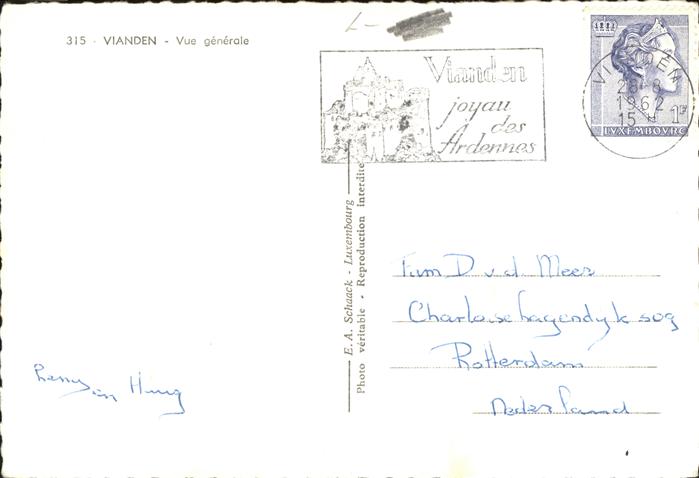 315 - VIANDEN - Vue générale
Vianden
joyau
des
Ardennes
VIANDEN
28-8
1962
15
1F
LUXEMBOURG
E. A. Schaack - Luxembourg
Photo véritable - Reproduction interdite
Fam D v.d. Meer
Charloisehagendyk 509
Rotterdam
Nederland
en